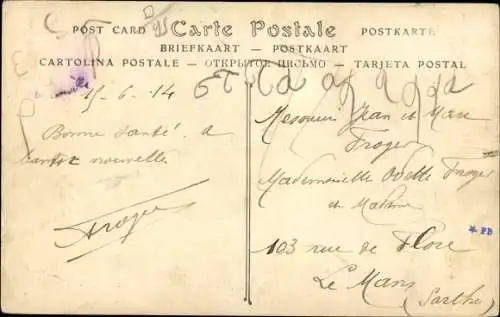 POST CARD Carte Postale POSTKARTE
BRIEFKAART — POSTKAART
CARTOLINA POSTALE — ОТКРЫТОЕ ПИСЬМО — TARJETA POSTAL
15-6-14
Bonne santé. a
bientot nouvelle
Froger
Messieurs Jean et Marc
Froger
Mademoiselle Odette Froger
et Madame
103 rue de Flore
Le Mans
(Sarthe)
* PB